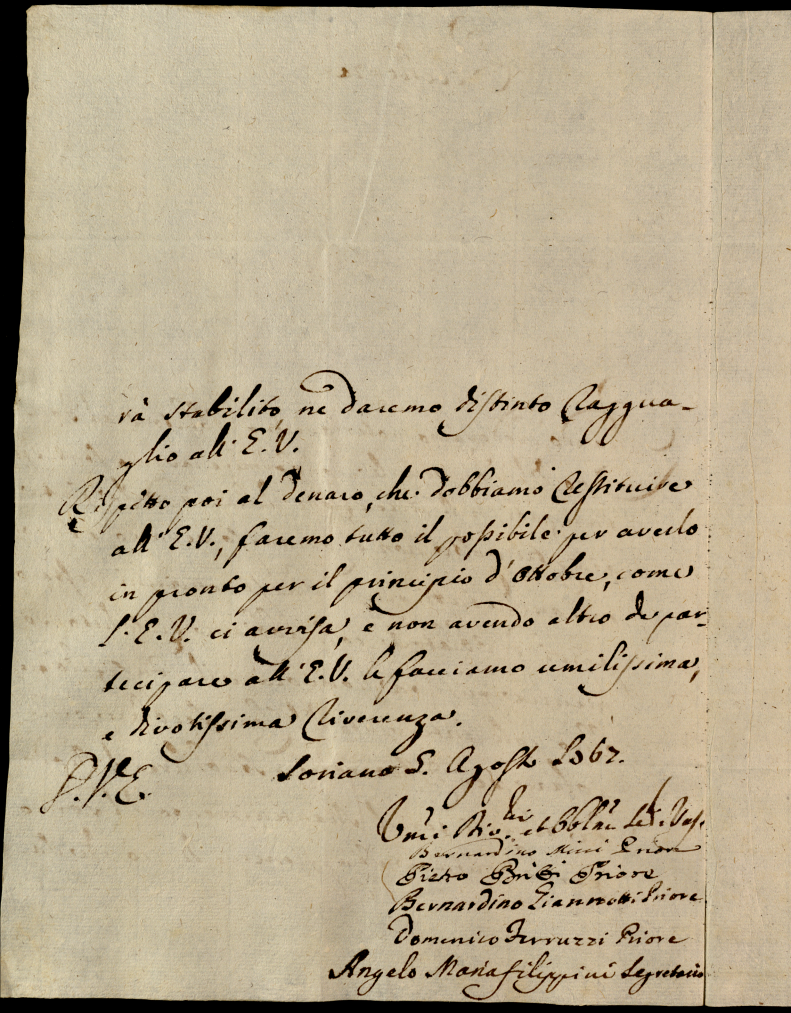 rà stabilito, ne daremo distinto raggua-
glio all' E. V.
Rispetto poi al denaro, che dobbiamo restituire
all' E. V., faremo tutto il possibile per averlo
in pronto per il principio d' Ottobre, come
l' E. V. ci avvisa, e non avendo altro da par-
tecipare all' E. V. le facciamo umilissima,
e divotissima riverenza.
Soriano 5. Agosto 1767.
D. V. E.
Umi Divmi et Obblmi
Bernardino Priore
Pietro Priore
Bernardino Giannotti Priore
Domenico Ferruzzi Priore
Angelo Maria Filippini Segretario